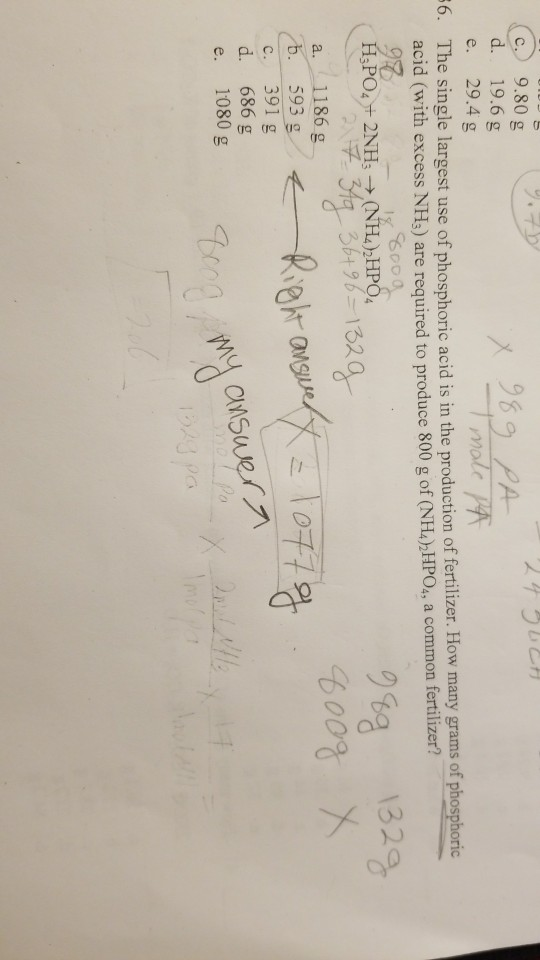 c. 9.80 g
d. 19.6 g
e. 29.4 g
x 98g PA
1 mole PA
36. The single largest use of phosphoric acid is in the production of fertilizer. How many grams of phosphoric
acid (with excess NH₃) are required to produce 800 g of (NH₄)₂HPO₄, a common fertilizer?
98
800g
H₃PO₄ + 2NH₃ → (NH₄)₂HPO₄
2x17=34g 36+96=132g
a. 1186 g
b. 593 g
c. 391 g
d. 686 g
e. 1080 g
← Right answer
x = 1077g
my answer
98g 132g
800g x
800g